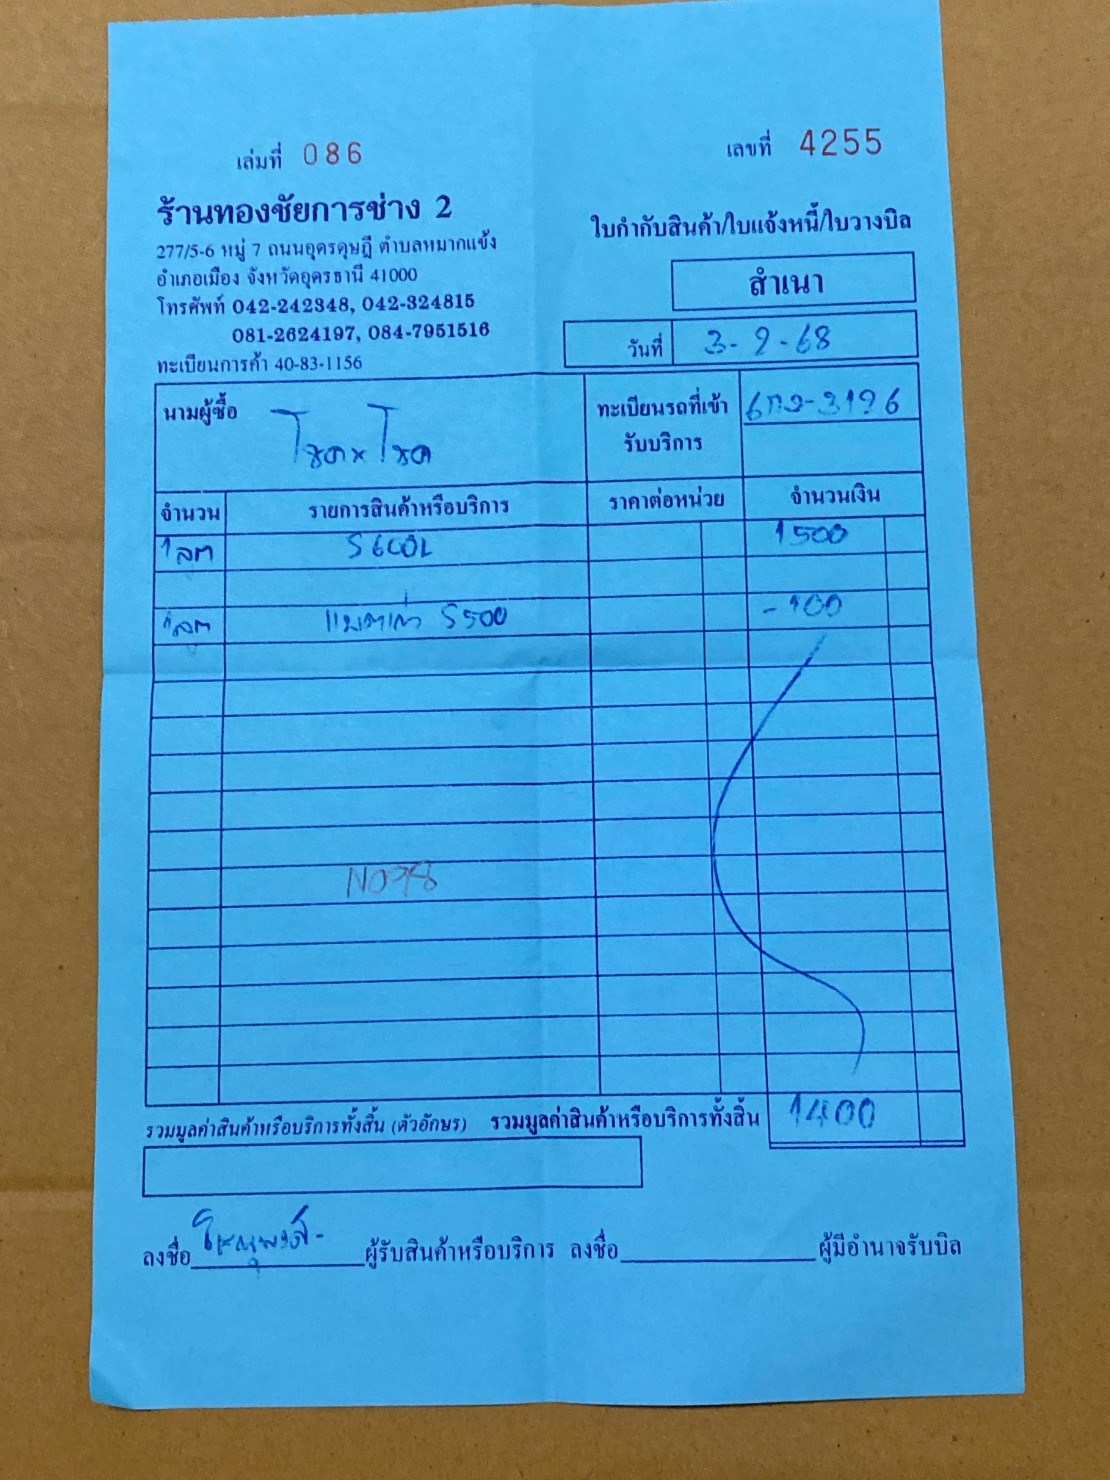 เล่มที่ 086
เลขที่ 4255
ร้านทองชัยการช่าง 2
277/5-6 หมู่ 7 ถนนอุดรดุษฎี ตำบลหมากแข้ง
อำเภอเมือง จังหวัดอุดรธานี 41000
โทรศัพท์ 042-242348, 042-324815
081-2624197, 084-7951516
ทะเบียนการค้า 40-83-1156
ใบกำกับสินค้า/ใบแจ้งหนี้/ใบวางบิล
สำเนา
วันที่ 3-9-68
นามผู้ซื้อ โชค x โชค
ทะเบียนรถที่เข้ารับบริการ
จำนวน รายการสินค้าหรือบริการ ราคาต่อหน่วย จำนวนเงิน
1 ลูก S60DL 1500
1 ลูก แบตเก่า S500 -100
รวมมูลค่าสินค้าหรือบริการทั้งสิ้น (ตัวอักษร) รวมมูลค่าสินค้าหรือบริการทั้งสิ้น 1400
ลงชื่อ ผู้รับสินค้าหรือบริการ ลงชื่อ ผู้มีอำนาจรับบิล